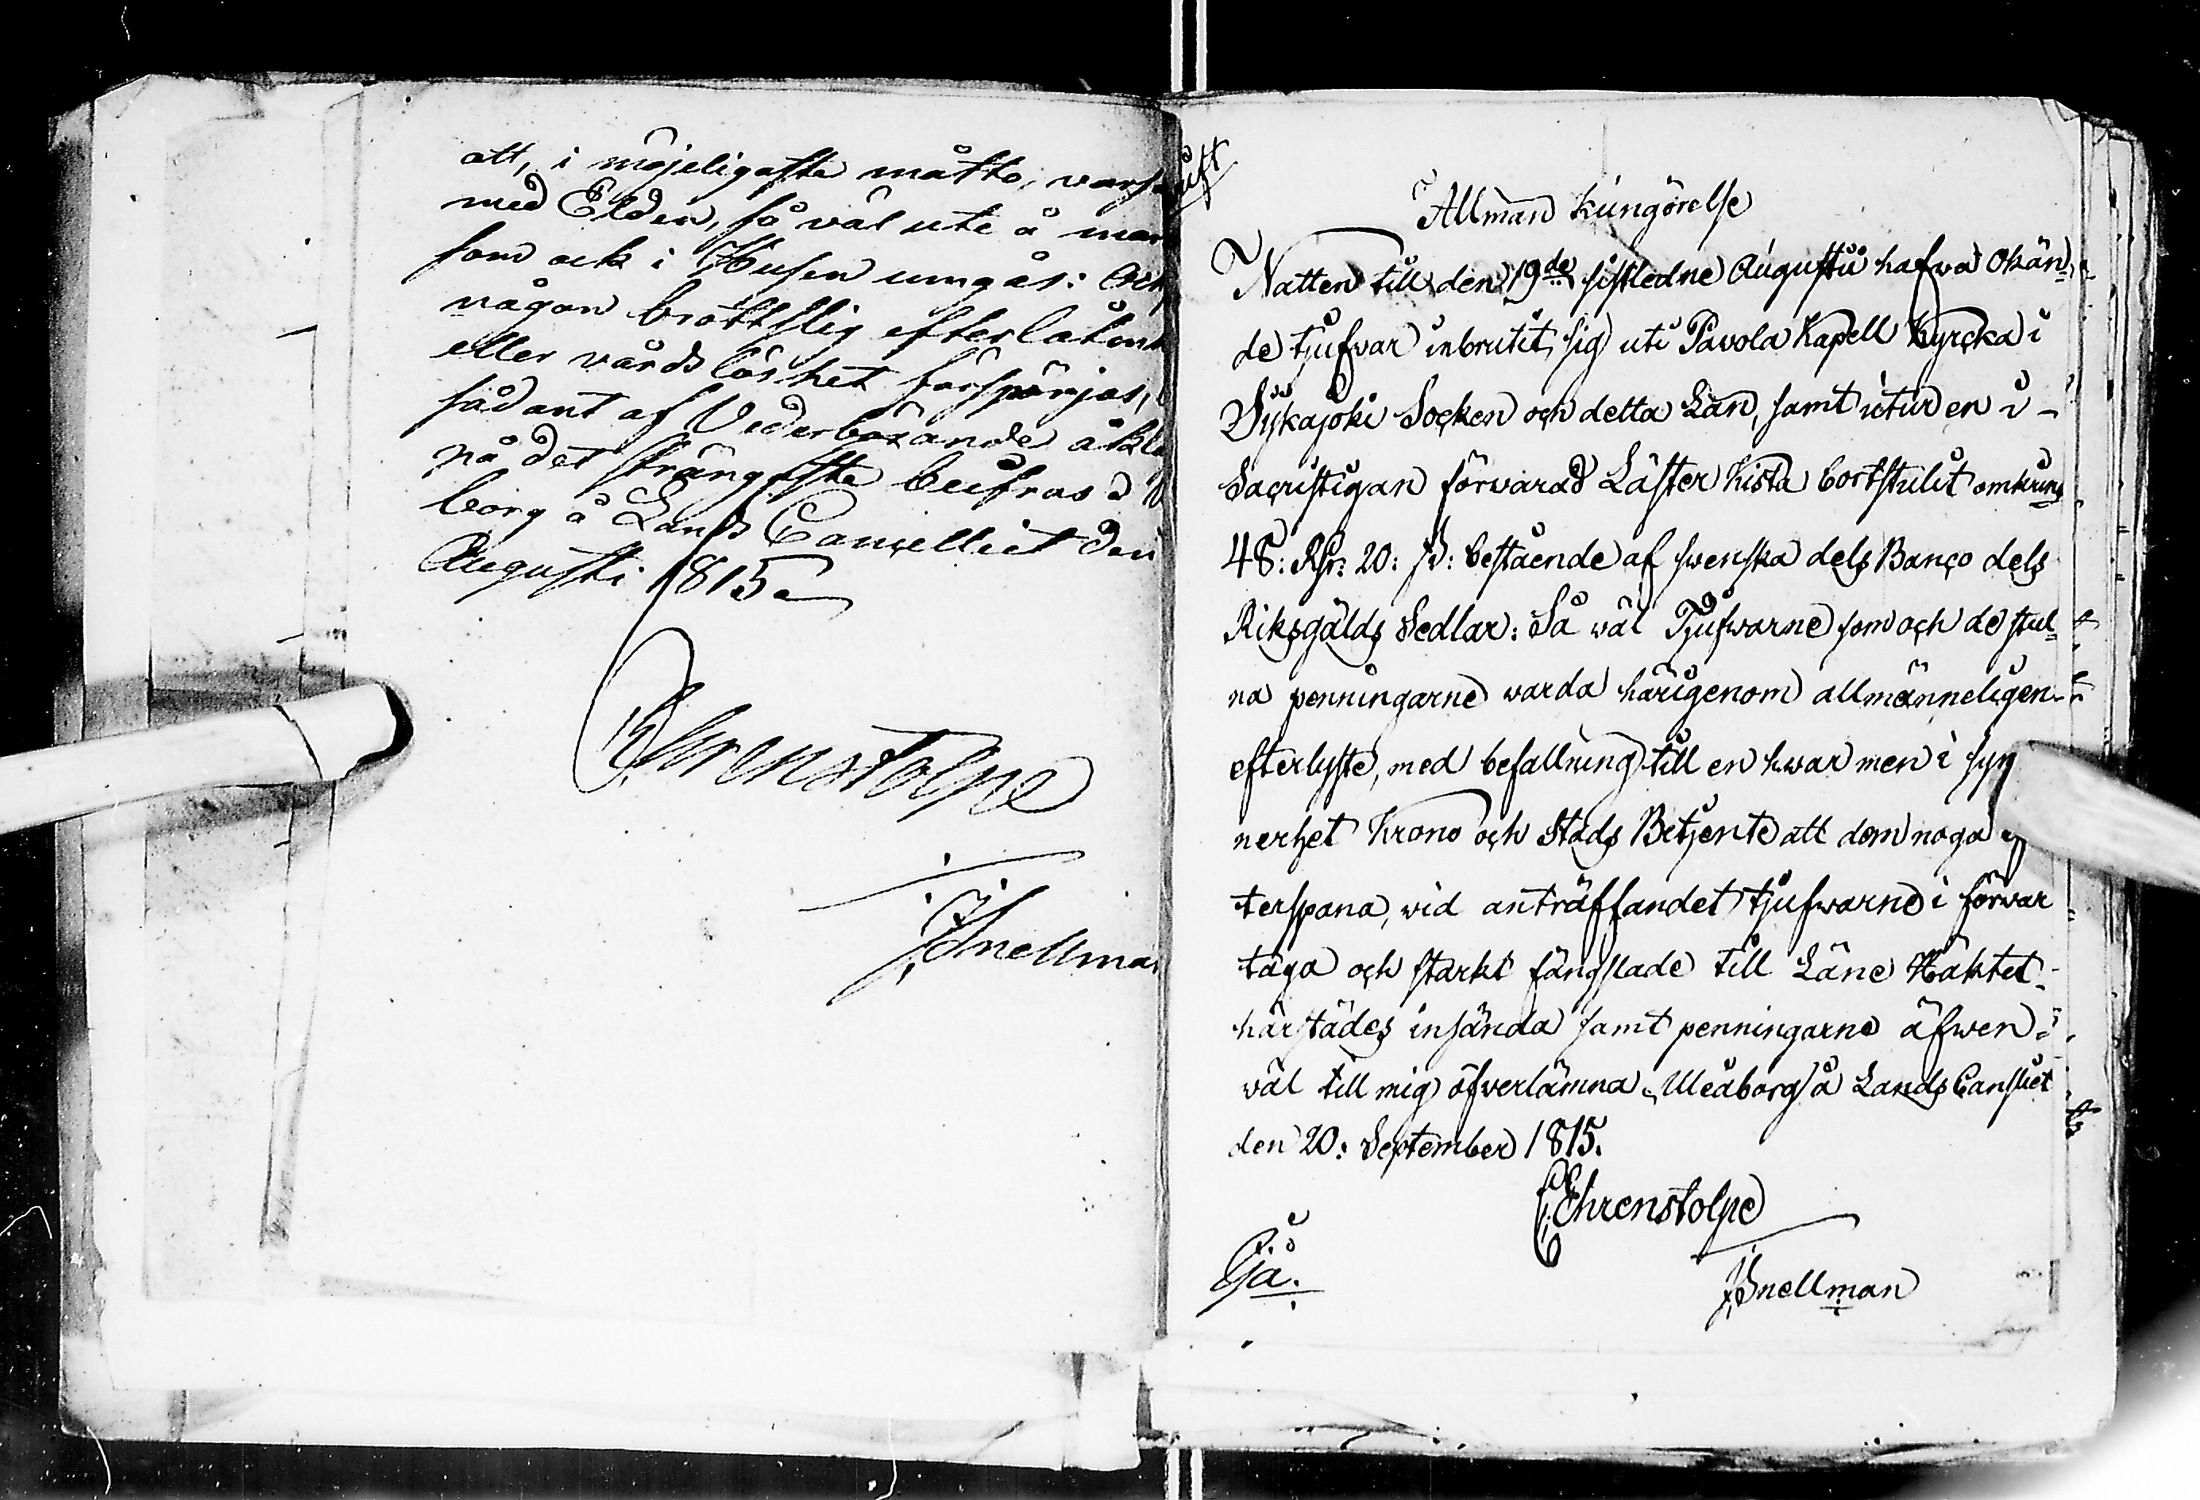 att, i möjeligaste måtto, warsa
med Elden, så väl ute å mar
som ock i Husen umgås: Och
någon brottslig efterlåtenh
eller vårdslöshet förspörjas,
sådant af Vederbörande åkla
på det strängsta beifras
borg å Lands Cancelliet den
Augusti 1815.
Ehrenstolpe
Snellman
Allmän Kungörelse
Natten till den 19de sistledne Augusti hafwa Okän=
de tjufvar inbrutit sig uti Pavola Kapell Kyrcka i
Sijkajoki Socken och detta Län, samt utur en i
Sacristigan förvarad Låster Kista bortstulit omkring
48: Rdr: 20: s: bestående af swenska dels Banco dels
Riksgälds Sedlar: Så väl Tjufwarne som och de stul=
na penningarne warda härigenom allmänneligen
efterlyste, med befallning till en hwar men i syn
nerhet Krono och Stads Betjente att dem noga ef
terspana, wid anträffandet tjufwarne i förvar
taga och starkt fängslade till Läne Häktet
härstädes insända samt penningarne äfwen
väl till mig öfverlämna. Uleåborg å Lands Cansliet
den 20: September 1815.
Ehrenstolpe
Snellman